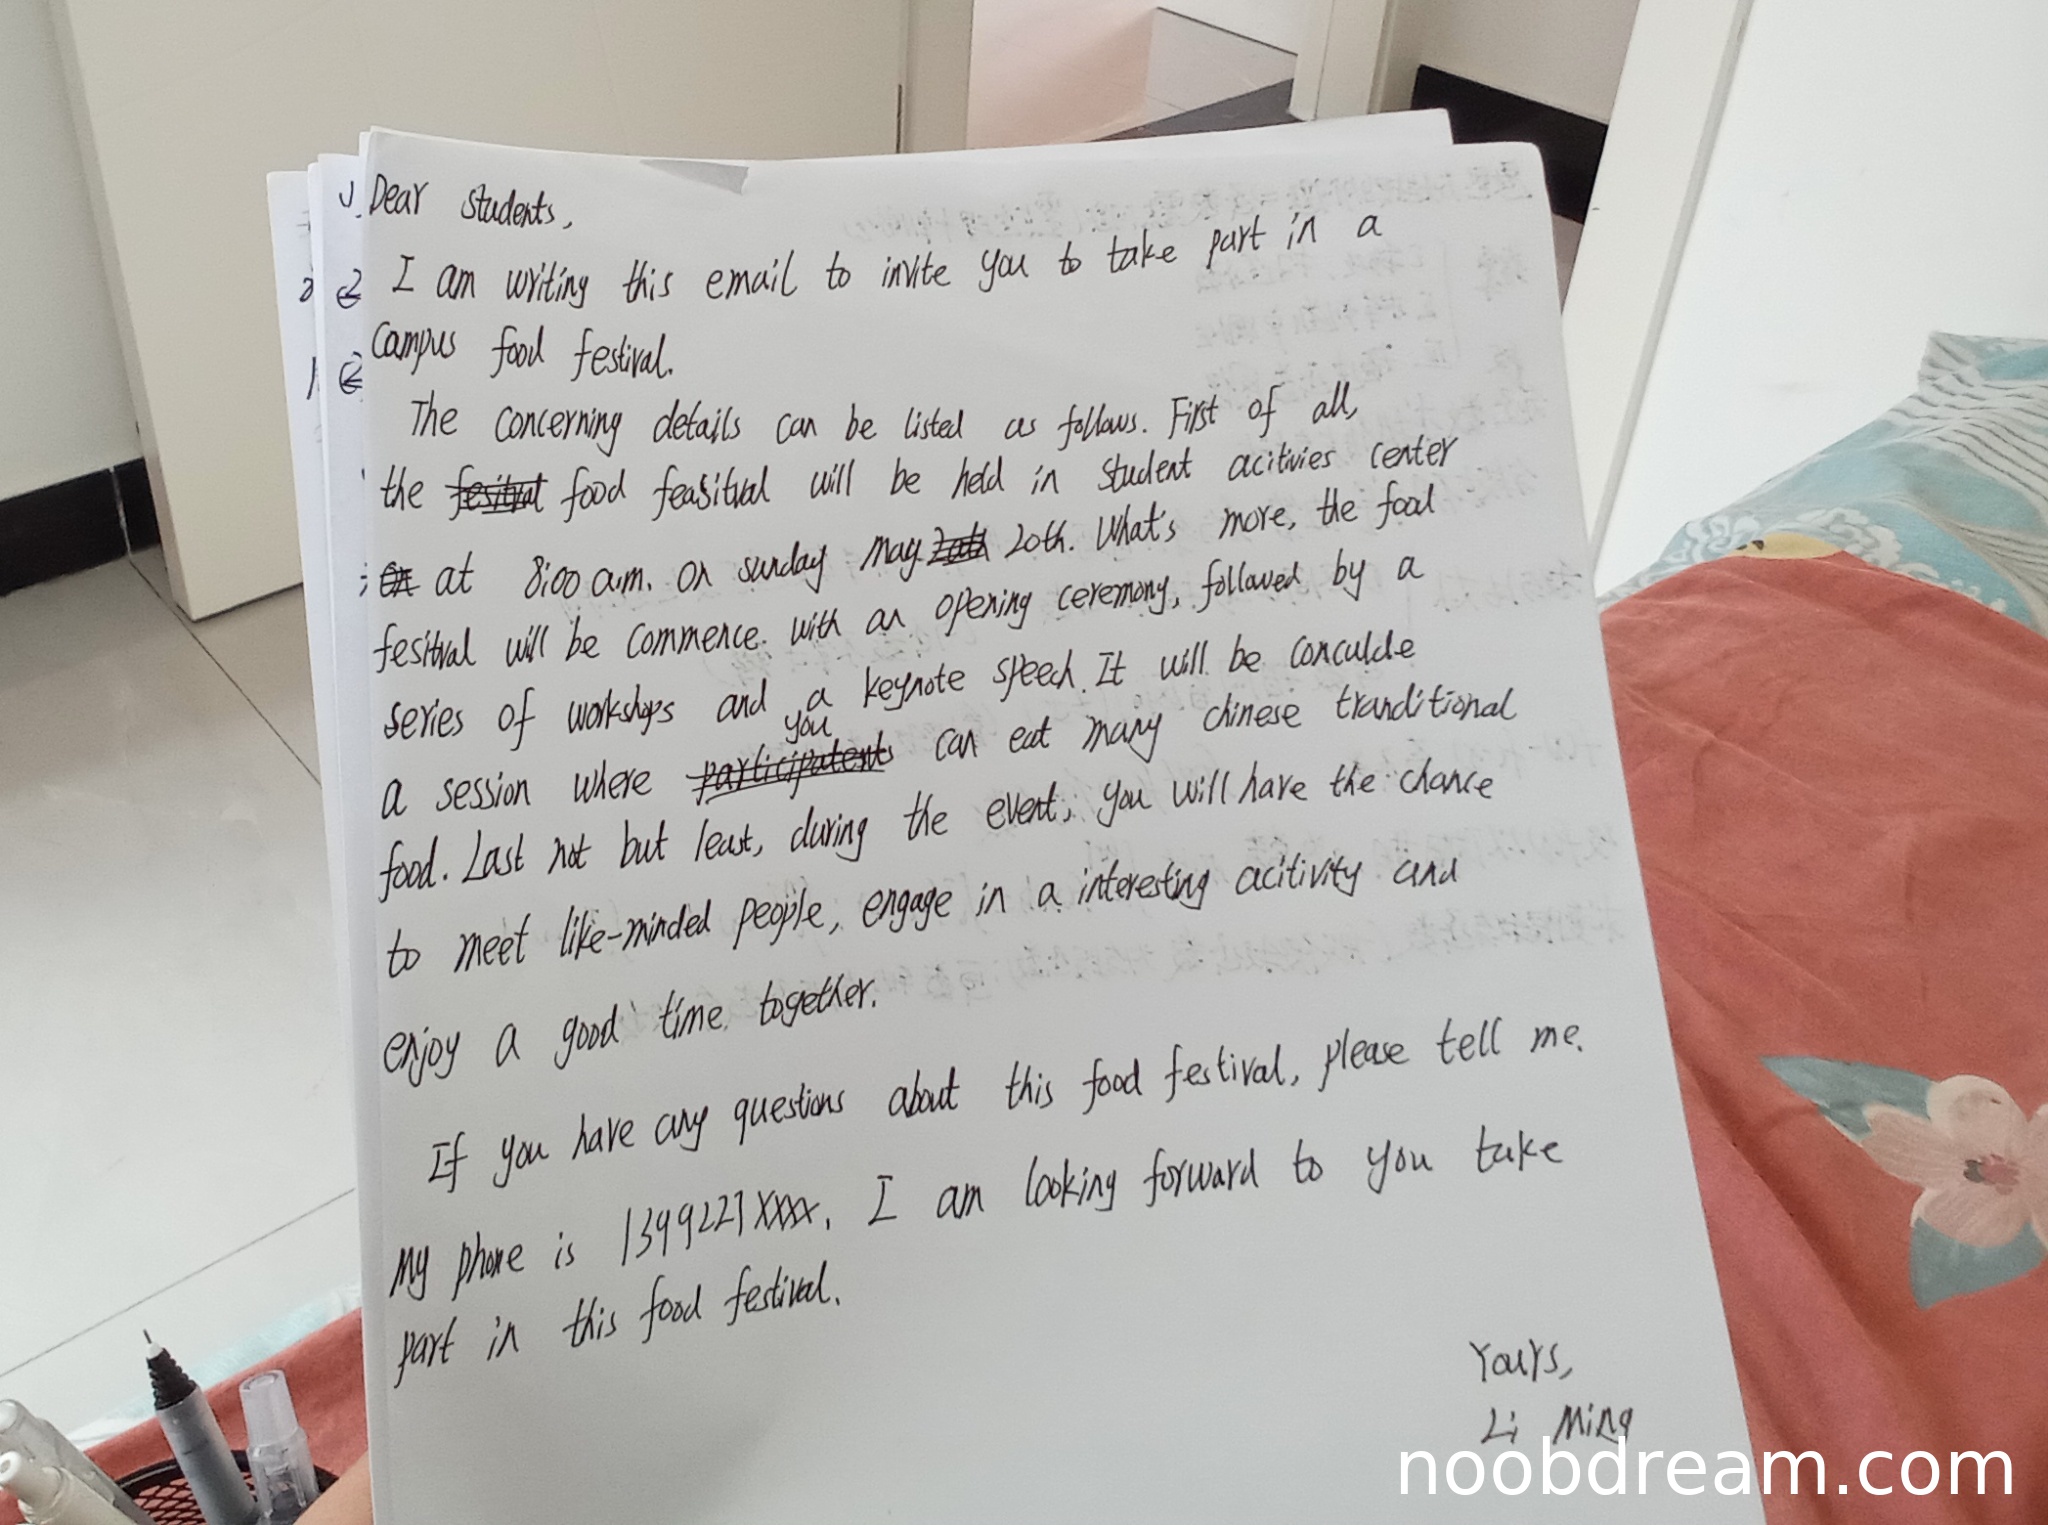 Dear students,
I am writing this email to invite you to take part in a
campus food festival.
The concerning details can be listed as follows. First of all,
the fesitval food feasitval will be held in student acitivies center
on at 8:00 a.m. on sunday may 20th 20th. What's more, the food
fesitval will be commence with an opening ceremony, followed by a
series of workshops and a keynote speech. It will be conculde
you
a session where participatents can eat many chinese tranditional
food. Last not but least, during the event, you will have the chance
to meet like-minded people, engage in a interesting acitivity and
enjoy a good time together.
If you have any questions about this food festival, please tell me.
My phone is 1399227xxxx. I am looking forward to you take
part in this food festival.
Yours,
Li Ming
noobdream.com